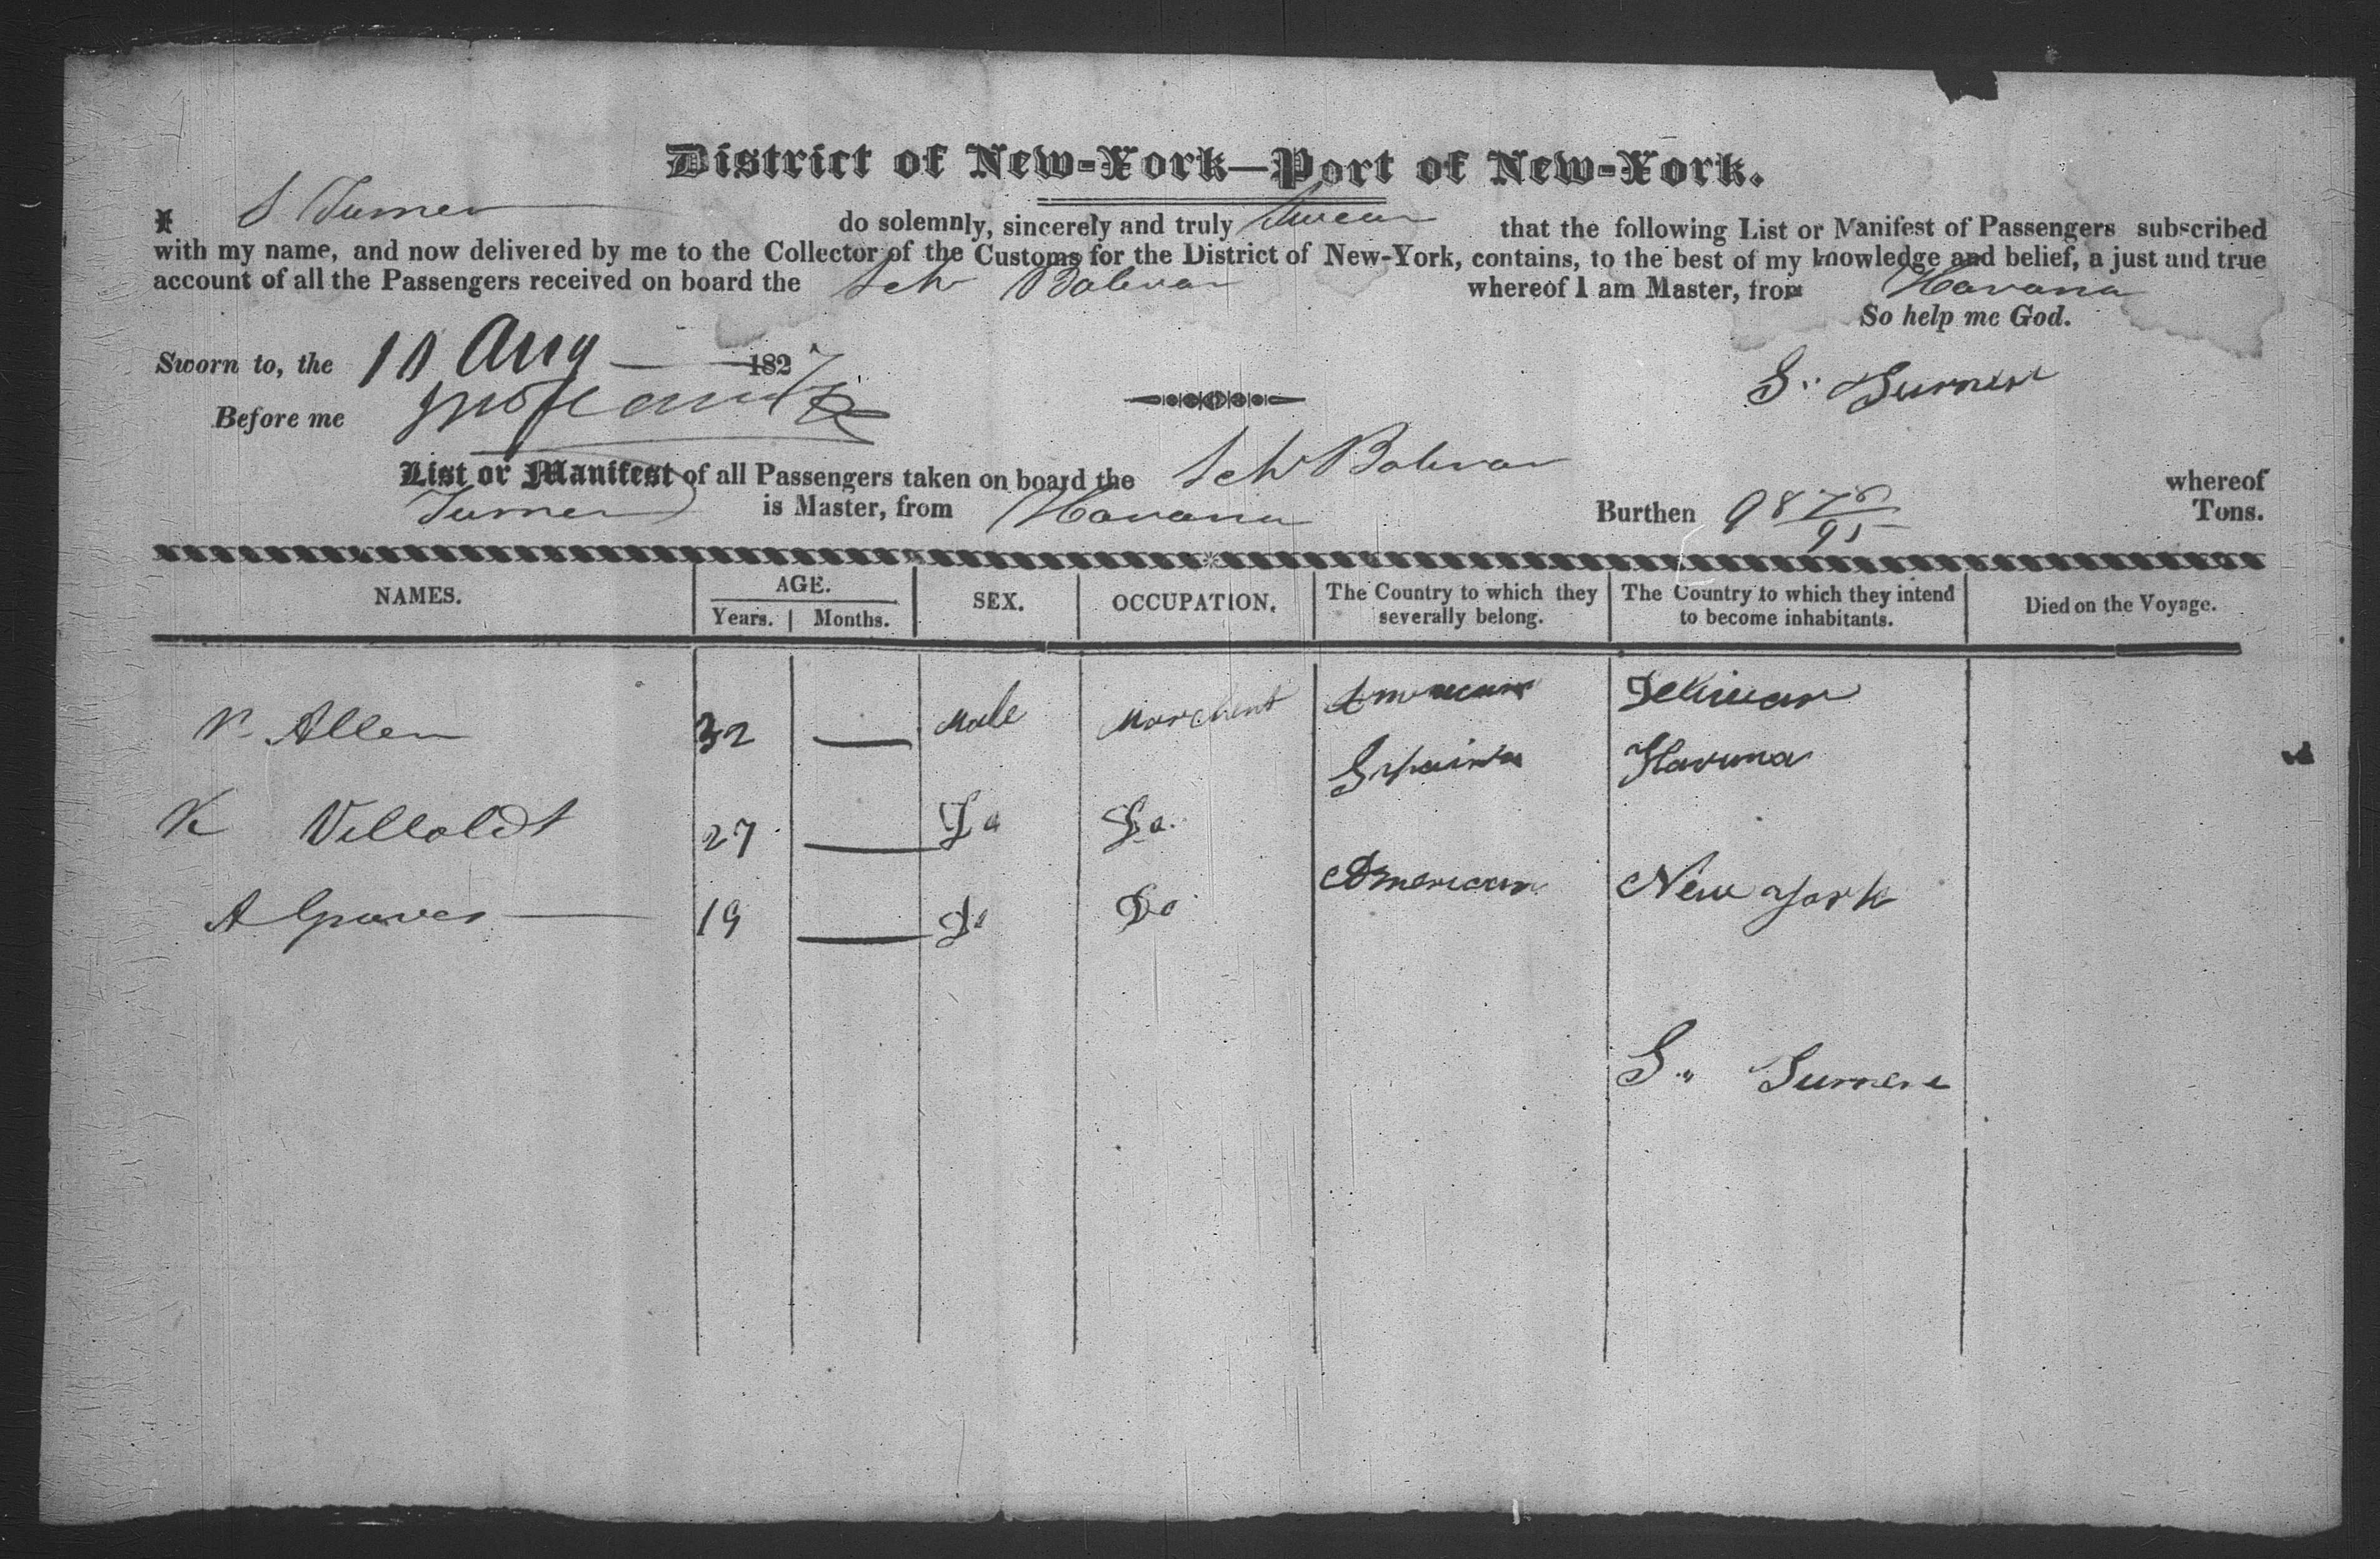 District of New-York—Port of New-York.
I S Turner do solemnly, sincerely and truly swear that the following List or Manifest of Passengers subscribed
with my name, and now delivered by me to the Collector of the Customs for the District of New-York, contains, to the best of my knowledge and belief, a just and true
account of all the Passengers received on board the Schr Bolivar whereof I am Master, from Havana
So help me God.
Sworn to, the 10 Aug 1827
S. Turner
Before me
List or Manifest of all Passengers taken on board the Schr Bolivar whereof
Turner is Master, from Havana Burthen 98 76/95 Tons.
NAMES. AGE. SEX. OCCUPATION. The Country to which they severally belong. The Country to which they intend to become inhabitants. Died on the Voyage.
Years. Months.
Allen 32 — Male Marchent American
Villoldt 27 — Do Do. Havana
A Graves 19 — Do Do American New York
S. Turner